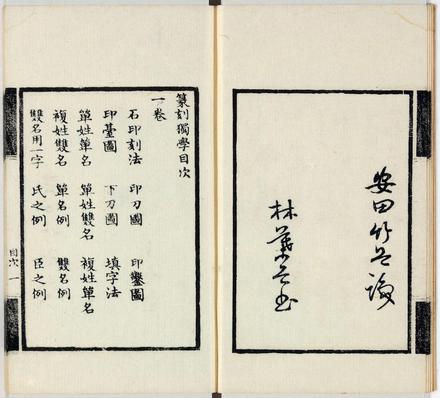 安田竹
林
篆刻獨學目次
一卷
石印刻法 印刀圖 印鑿圖
印臺圖 下刀圖 填字法
單姓單名 單姓雙名 複姓單名
複姓雙名 單名例 雙名例
雙名用一字 氏之例 臣之例
目次 一